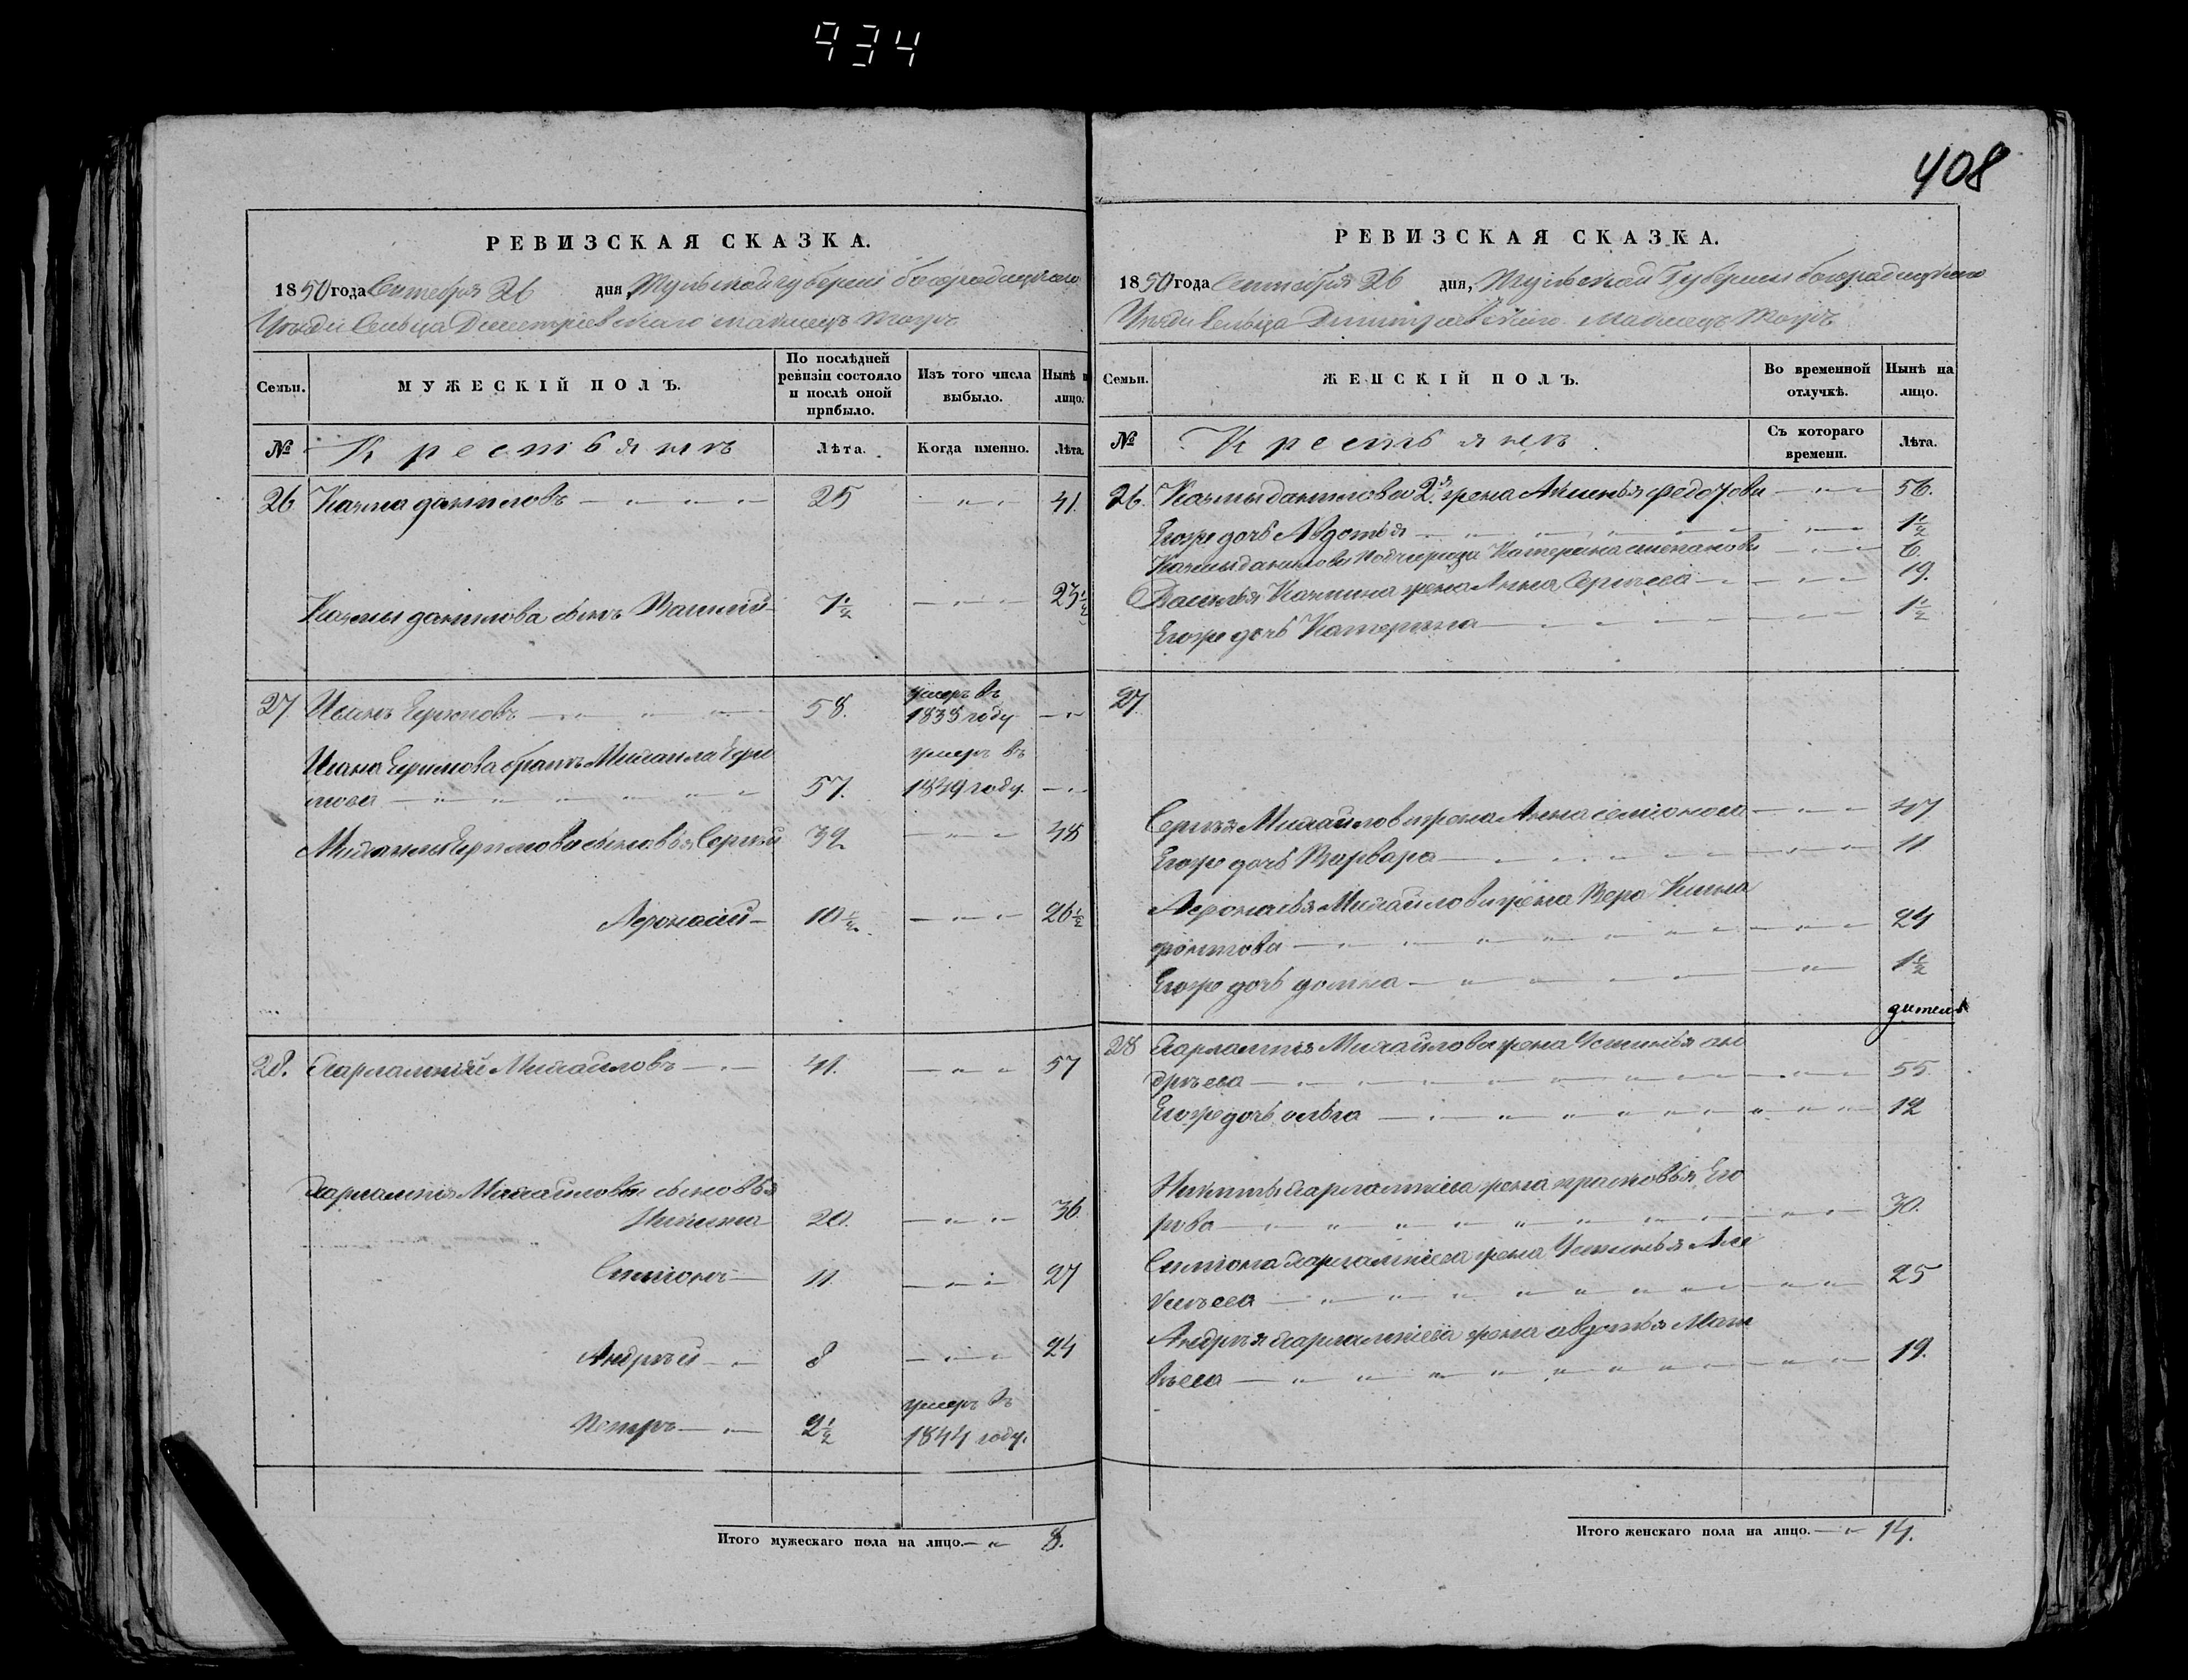 934
408
РЕВИЗСКАЯ СКАЗКА.
1850 года Сентебря 26 дня, Тульской губернiи богородицкаго
Уезди Сельца Дмитрiевскаго тожъ
Семьи. МУЖЕСКІЙ ПОЛЪ. По послѣдней ревизіи состояло и послѣ оной прибыло. Изъ того числа выбыло. Нынѣ на лицо.
№ Крестьянъ Лѣта. Когда именно. Лѣта.
26 Казма даниловъ 25 41.
Казмы данилова сынъ Василий 7½ 23½
27 Иванъ Ерховъ 58. умеръ въ 1835 году
Ивана братъ Михаила
57. умеръ въ 1849 году.
Михаилы сыновья Сергѣй 32 48
Афонасий 10½. 26½
28. Харлампий Михайловъ 41. 57
Харлампия Михайлова сыновья
Никита 20. 36
Симионъ 11. 27
Андрѣй 8 24
Петръ 2½ умеръ въ 1844 году.
Итого мужескаго пола на лицо. 8.
РЕВИЗСКАЯ СКАЗКА.
1850 года Сентебря 26 дня, Тульской Губернии богородицкаго
Уезди Сельца Димитриевскаго тожъ
Семьи. ЖЕНСКІЙ ПОЛЪ. Во временной отлучкѣ. Нынѣ на лицо.
№ Крестьянъ. Съ котораго времени. Лѣта.
26. Казмы данилова 2я жена Аксинья федорова 56.
Егоже дочь Авдотья 1½
Казмы данилова Катерина степанова 6.
Василья Казмина жена Анна Сергѣева 19.
Егоже дочь Катерина 1½
27
Сергѣя Михайлова жена Анна семионова 47
Егоже дочь Варвара 11
Афонасья Михайлова жена Вера
24
Егоже дочь домна 1½
28 Харлампия Михайлова жена Устинья ан
дрѣева 55.
Егоже дочь ольга 12
Никиты Харлампиева жена прасковья Его
рова 30.
Симиона Харлампиева жена Устинья Але
ксѣева 25
Андрѣя Харлампиева жена авдотья Мат
вѣева 19.
Итого женскаго пола на лицо. 14.